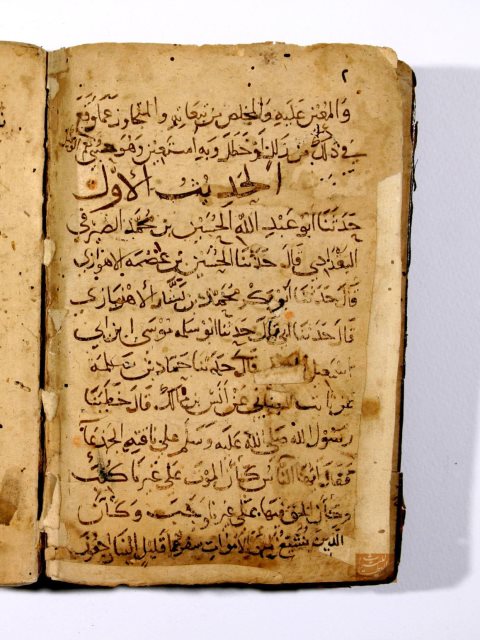 ٢
والمعين عليه والمخلص من تبعاته والمتجاوز عما وقع
في ذلك من زلل او خطل وبه استعين وهو حسبي
الحديث الاول
حدثنا ابو عبد الله الحسين بن محمد الصيرفي
البغدادي قال حدثنا الحسين بن عصمه الاهوازي
قال حدثنا ابو بكر محمد بن بندار الاهوازي
قال حدثنا ابي قال حدثنا ابو سلمه موسى ابن
اسمعيل قال حدثنا حماد بن سلمة
عن ثابت البناني عن انس بن مالك قال خطبنا
رسول الله صلى الله عليه وسلم على ناقته الجدعآ
فقال ايها الناس كأن الموت على غيرنا كتب
وكأن الحق فيها على غيرنا وجب وكأن
الذين نشيع من الاموات سفر عما قليل الينا راجعون